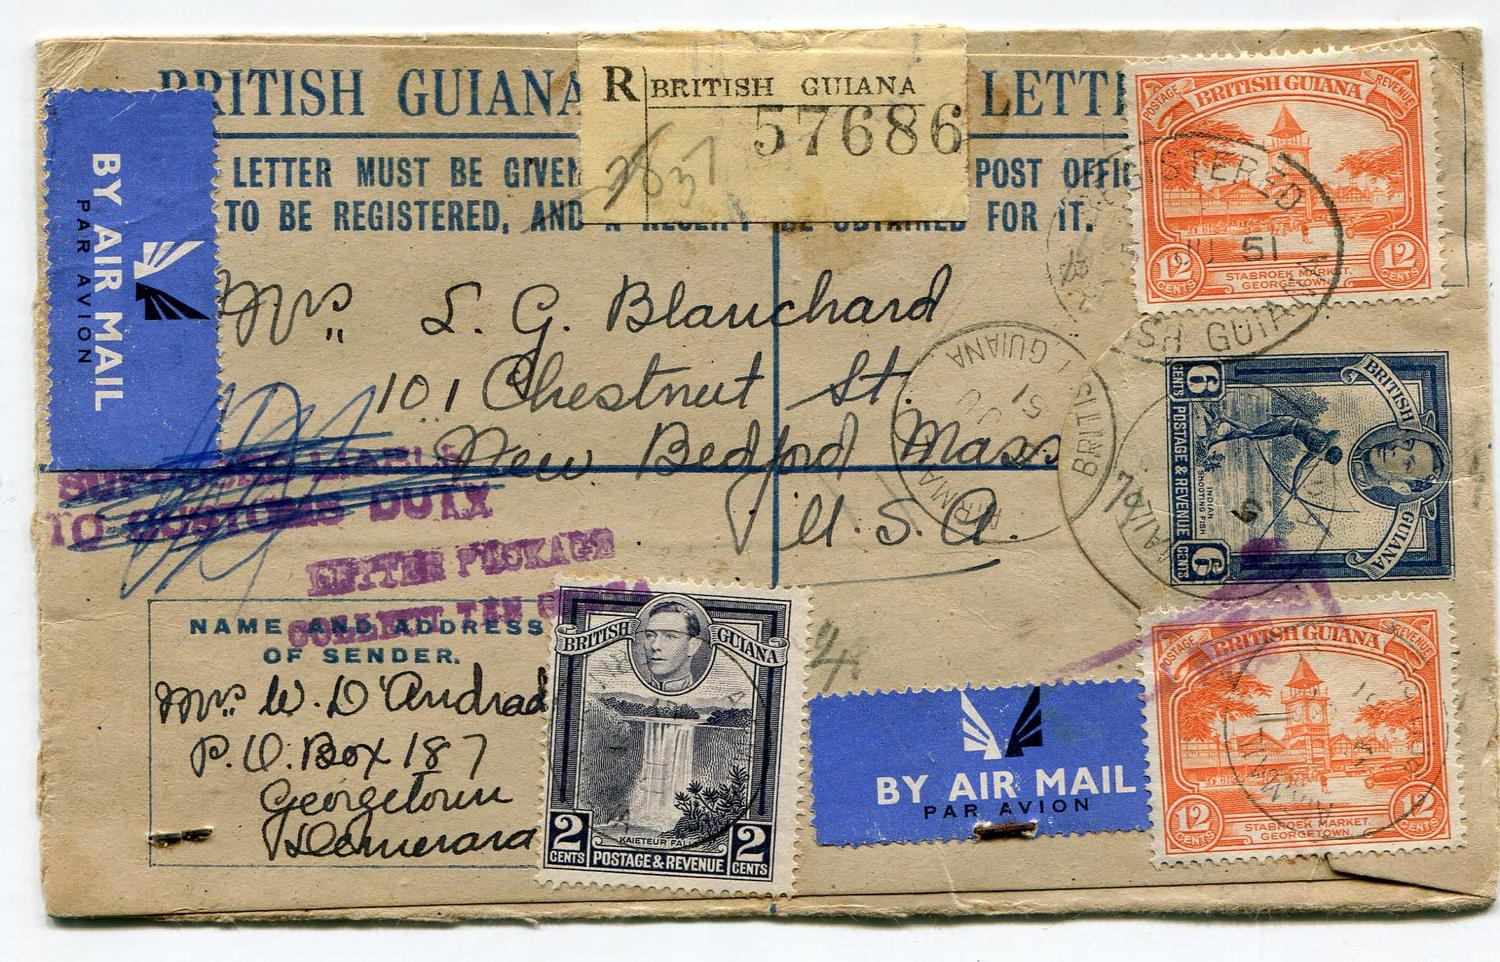 BRITISH GUIANA LETT
R BRITISH GUIANA
57686
2637
LETTER MUST BE GIVEN POST OFFIC
TO BE REGISTERED, AND A RECEIPT BE OBTAINED FOR IT.
BY AIR MAIL
PAR AVION
Mrs L. G. Blanchard
101 Chestnut St.
New Bedford Mass
U.S.A.
SUPPOSED LIABLE
TO CUSTOMS DUTY
LETTER PACKAGE
COLLECT TEN
NAME AND ADDRESS
OF SENDER.
Mrs W. D'Andrad
P.O. Box 187
Georgetown
Demerara
4
BRITISH GUIANA
KAIETEUR FALL
2 CENTS POSTAGE & REVENUE 2 CENTS
BY AIR MAIL
PAR AVION
POSTAGE BRITISH GUIANA REVENUE
12 CENTS STABROEK MARKET. GEORGETOWN. 12 CENTS
GISTERED
JU 51
SH GUIANA
BRITISH GUIANA
JU
51
AIRMA
BRITISH GUIANA
INDIAN SHOOTING FISH
6 CENTS POSTAGE & REVENUE 6 CENTS
POSTAGE BRITISH GUIANA REVENUE
12 CENTS STABROEK MARKET. GEORGETOWN. 12 CENTS